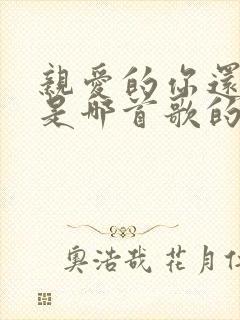 親愛的你還
是哪首歌的
奧浩哉 花月仁